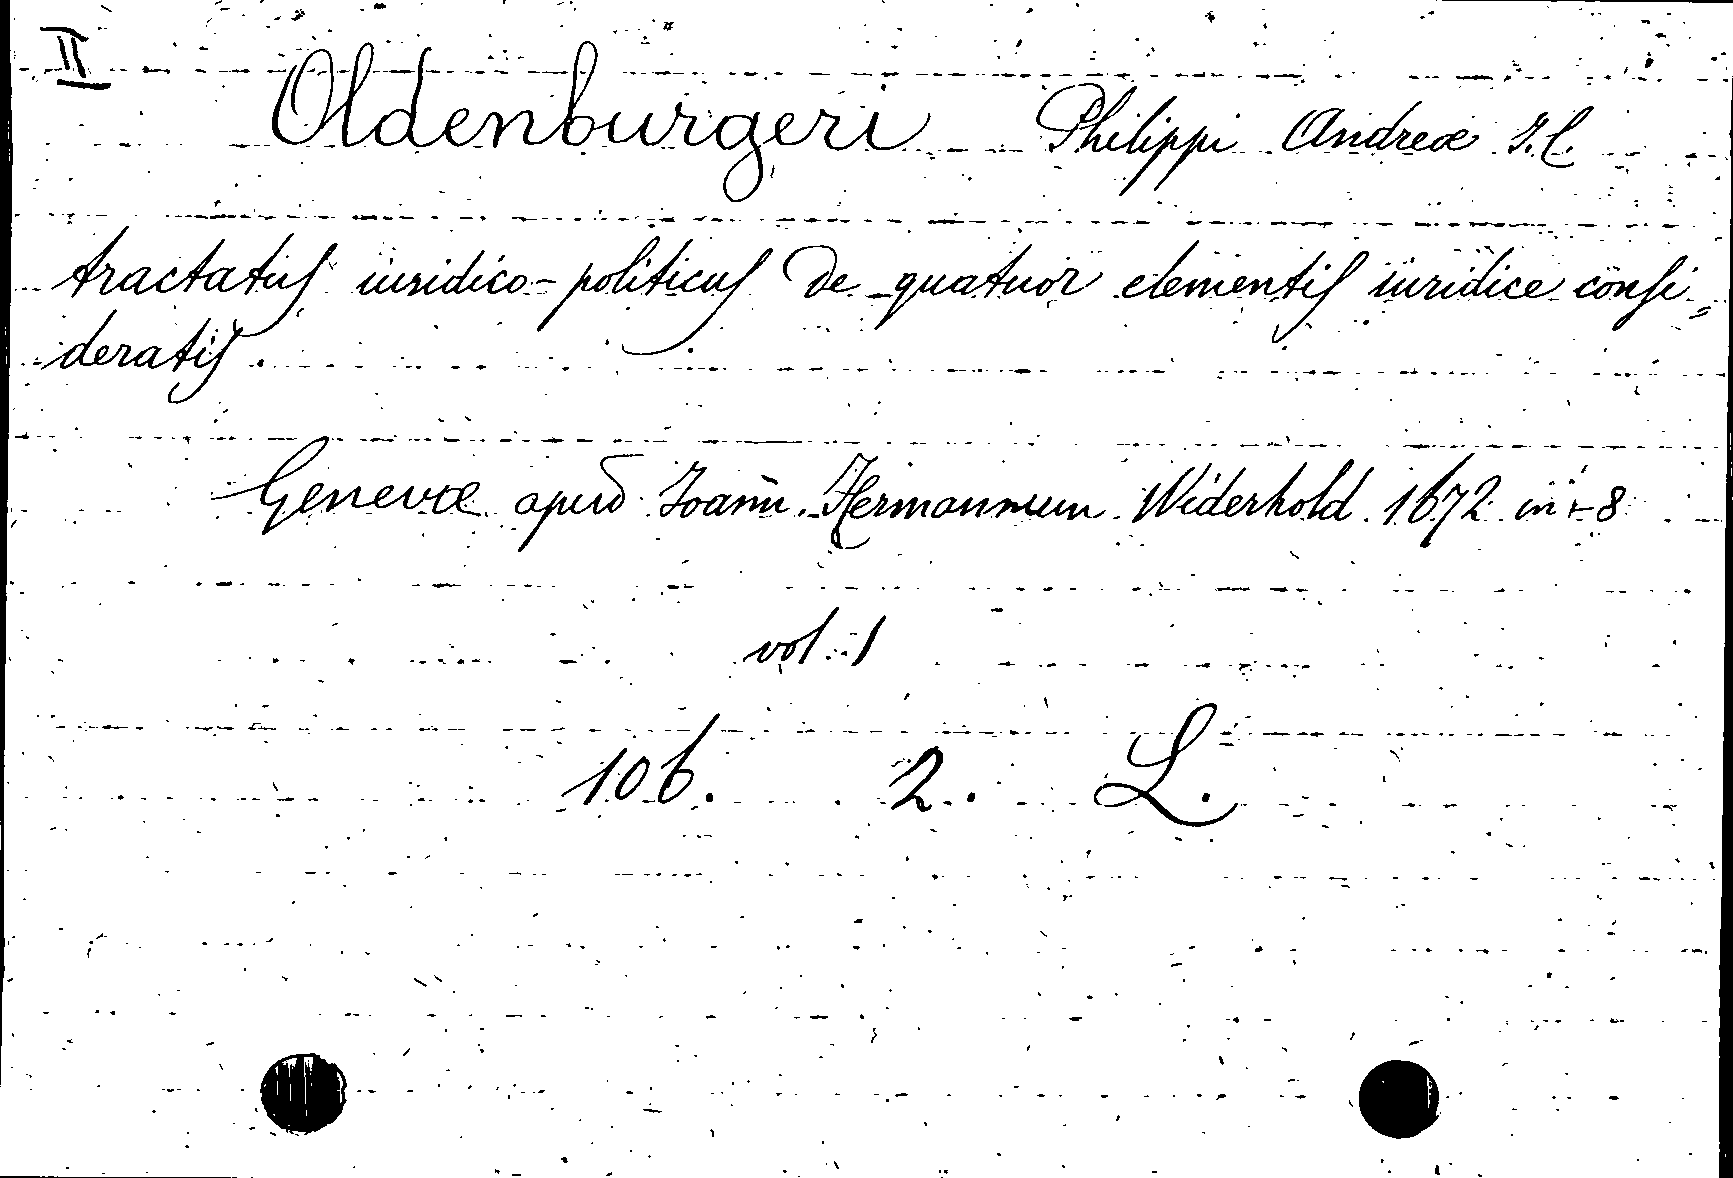 II
Oldenburgeri Philippi Andreæ J.C.
tractatus iuridico-politicus de quatuor elementis iuridice consi„
deratis.
Genevæ apud Joann. Hermannum Widerhold 1672 in-8
vol. 1
106. 2. L.